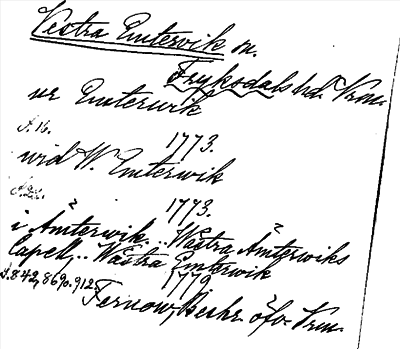 Vestra Emtervik sn.
Fryksdals hd. Vrm.
ur Emterwik
s. 16. 1773.
wid W. Emterwik
1773.
i Ämterwik... Wästra Ämterwiks
Capell,.. Wästra Emterwik
s. 842, 869 o. 912. 1779
Fernow, Beskr. öfv. Vrm.